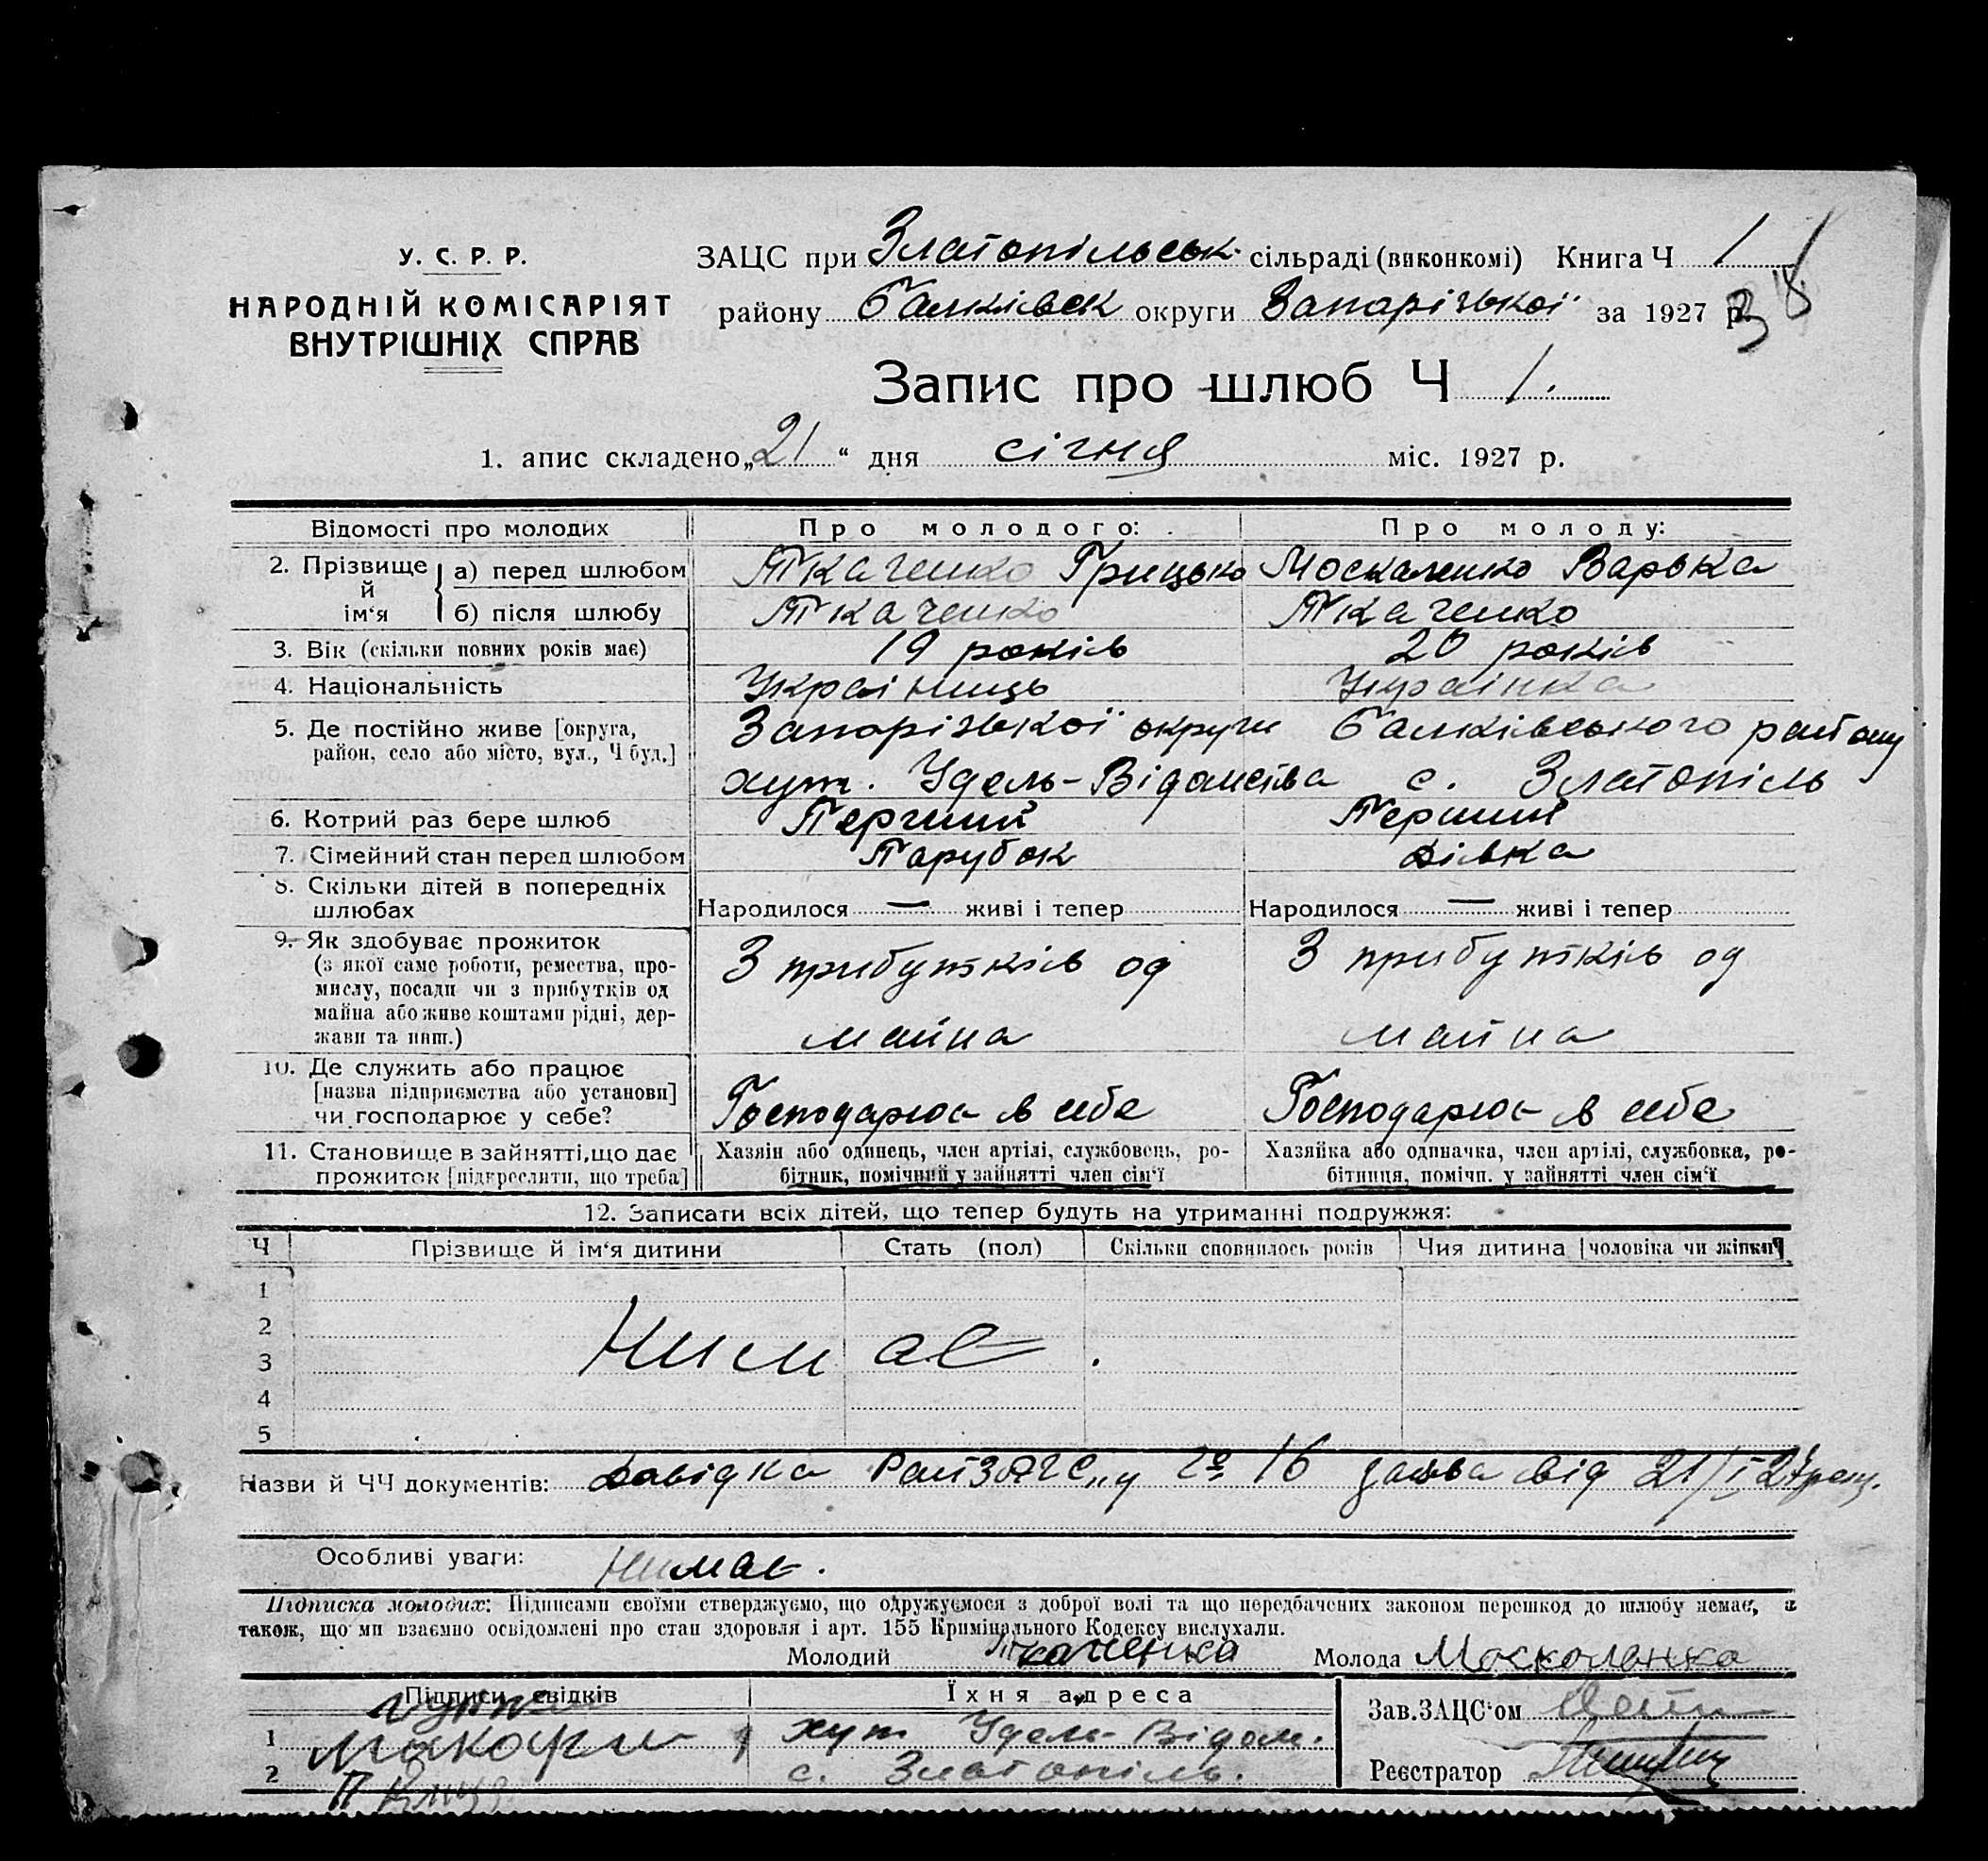 У. С. Р. Р.
НАРОДНІЙ КОМІСАРІЯТ
ВНУТРІШНІХ СПРАВ
ЗАЦС при Златопільськ. сільраді (виконкомі) Книга Ч 1
району Балківськ округи Запорізької за 1927 р.
38
Запис про шлюб Ч 1.
1. апис складено „21“ дня січня міс. 1927 р.
Відомості про молодих Про молодого: Про молоду:
2. Прізвище й ім‘я а) перед шлюбом Ткаченко Грицько Москаленко Варька
б) після шлюбу Ткаченко Ткаченко
3. Вік (скільки повних років має) 19 років 20 років
4. Національність Українець Українка
5. Де постійно живе [округа, Запорізької округи Балківського району
район, село або місто, вул., Ч буд.] хут. Удель-Відомства с. Златопіль
6. Котрий раз бере шлюб Перший Перший
7. Сімейний стан перед шлюбом Парубок дівка
8. Скільки дітей в попередніх
шлюбах Народилося — живі і тепер Народилося — живі і тепер
9. Як здобуває прожиток
(з якої саме роботи, ремества, про- З прибутків од З прибутків од
мислу, посади чи з прибутків од
майна або живе коштами рідні, дер- майна майна
жави та инш.)
10. Де служить або працює
[назва підприємства або установи] Господарює в себе Господарює в себе
чи господарює у себе?
11. Становище в зайнятті, що дає Хазяін або одинець, член артілі, службовець, ро- Хазяйка або одиначка, член артілі, службовка, ро-
прожиток [підкреслити, що треба] бітник, помічний у зайнятті член сім‘ї бітниця, помічн. у зайнятті член сім‘ї
12. Записати всіх дітей, що тепер будуть на утриманні подружжя:
Ч Прізвище й ім‘я дитини Стать (пол) Скільки сповнилось років Чия дитина [чоловіка чи жінки]
1
2
3 Нимає.
4
5
Назви й ЧЧ документів: Довідка № 16 заява від 21/I 27
Особливі уваги: Нимає.
Підписка молодих: Підписами своїми стверджуємо, що одружуємося з доброї волі та що передбачених законом перешкод до шлюбу немає, а
також, що ми взаємно освідомлені про стан здоровля і арт. 155 Кримінального Кодексу вислухали.
Молодий Ткаченко Молода Москоленко
Підписи свідків Їхня адреса Зав. ЗАЦС‘ом
1 хут Удель-Відом.
2 с. Златопіль. Реєстратор